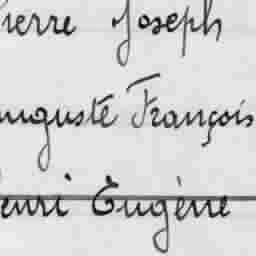 ierre Joseph
uguste François
enri Eugène